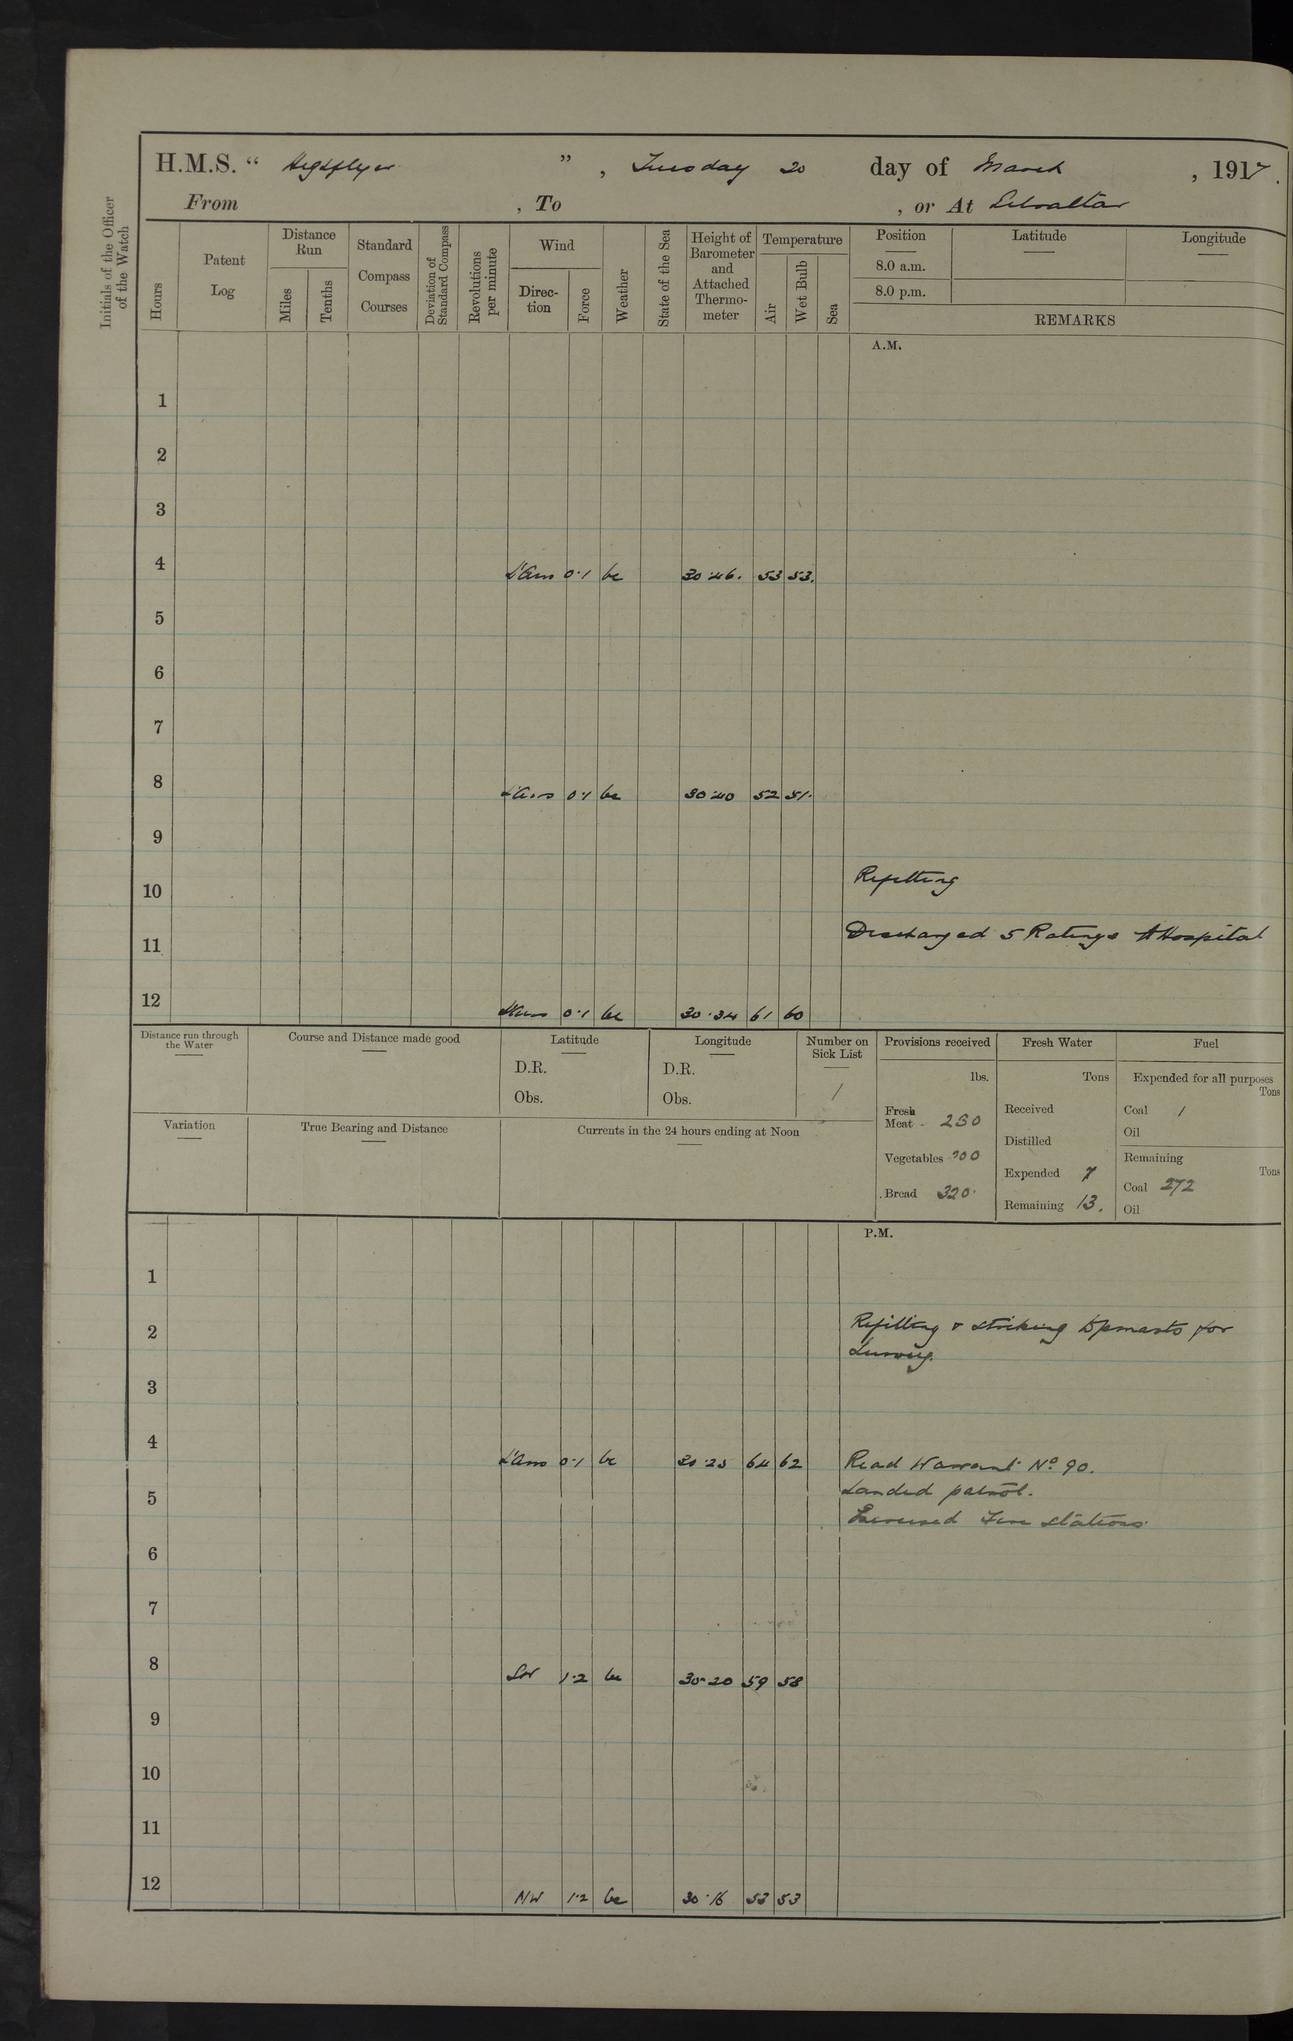 H.M.S. " Highflyer ", Tuesday 20 day of March, 1917.
From , To , or At Gibraltar
Initials of the Officer of the Watch
Hours
Patent Log
Distance Run
Miles
Tenths
Standard Compass Courses
Deviation of Standard Compass
Revolutions per minute
Wind
Direction
Force
Weather
State of the Sea
Height of Barometer and Attached Thermometer
Temperature
Air
Wet Bulb
Sea
Position
Latitude
Longitude
8.0 a.m.
8.0 p.m.
REMARKS
A.M.
1
2
3
4 L'Airs 0·1 bc 30·46. 53 53.
5
6
7
8 L'Airs 0·1 bc 30·40 52 51.
9
10 Refitting
11 Discharged 5 Ratings to Hospital
12 L'Airs 0·1 bc 30·34 61 60
Distance run through the Water
Course and Distance made good
Latitude
D.R.
Obs.
Longitude
D.R.
Obs.
Number on Sick List
1
Variation
True Bearing and Distance
Currents in the 24 hours ending at Noon
Provisions received
lbs.
Fresh Meat 250
Vegetables
Bread 320.
Fresh Water
Tons
Received
Distilled
Expended 7
Remaining 13.
Fuel
Expended for all purposes
Tons
Coal 1
Oil
Remaining
Tons
Coal 272
Oil
P.M.
1
2 Refitting & striking topmasts for
Survey.
3
4 L'Airs 0·1 bc 30·23 64 62 Read Warrant No 90.
5 Landed patrol.
Exercised Fire Stations.
6
7
8 SW 1·2 bc 30·20 59 58
9
10
11
12 NW 1·2 bc 30·16 53 53